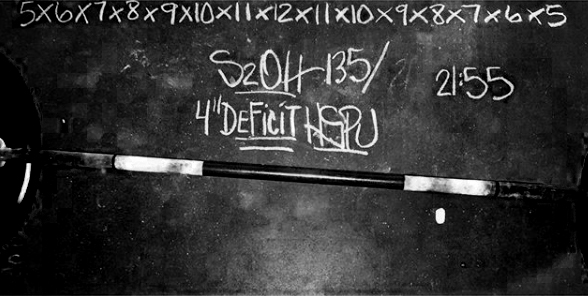 5x6x7x8x9x10x11x12x11x10x9x8x7x6x5
S2OH 135/
21:55
4" DEFiCiT HSPU